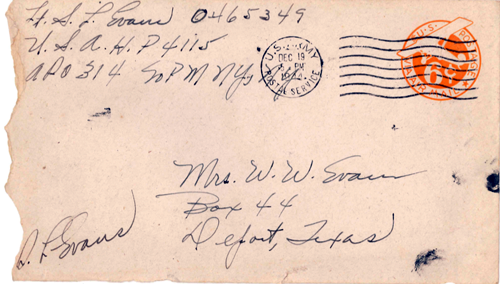 Lt. S L Evans 0465349
U.S.A.H.P 4115
APO 314 % PM NY, NY
U.S. ARMY
DEC 19
PM
POSTAL SERVICE
U.S. POSTAGE
6¢
VIA AIR MAIL
Mrs. W. W. Evans
Box 44
Deport, Texas
S L Evans